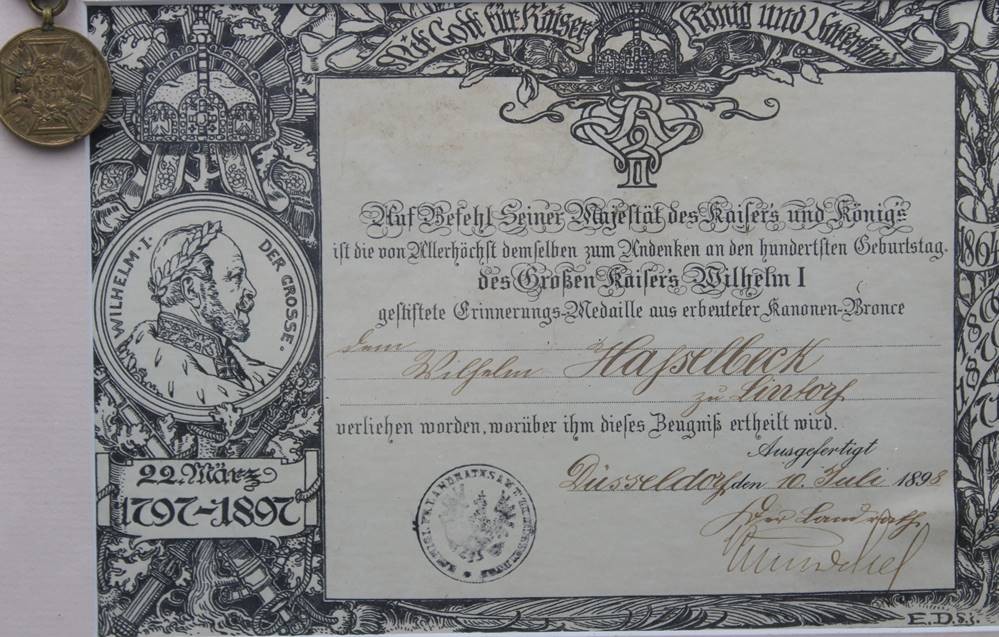 Mit Gott für Kaiser König und Vaterland
Auf Befehl Seiner Majestät des Kaisers und Königs
ist die von Allerhöchst demselben zum Andenken an den hundertsten Geburtstag
des Großen Kaisers Wilhelm I
gestiftete Erinnerungs-Medaille aus erbeuteter Kanonen-Bronce
dem
Wilhelm Hasselbeck
zu Lintorf
verliehen worden, worüber ihm dieses Zeugniß ertheilt wird.
Ausgefertigt
Düsseldorf den 10. Juli 1898
Der Landrath
WILHELM · I · DER GROSSE.
22. März
1797-1897
1864
E.D.
1870
1871